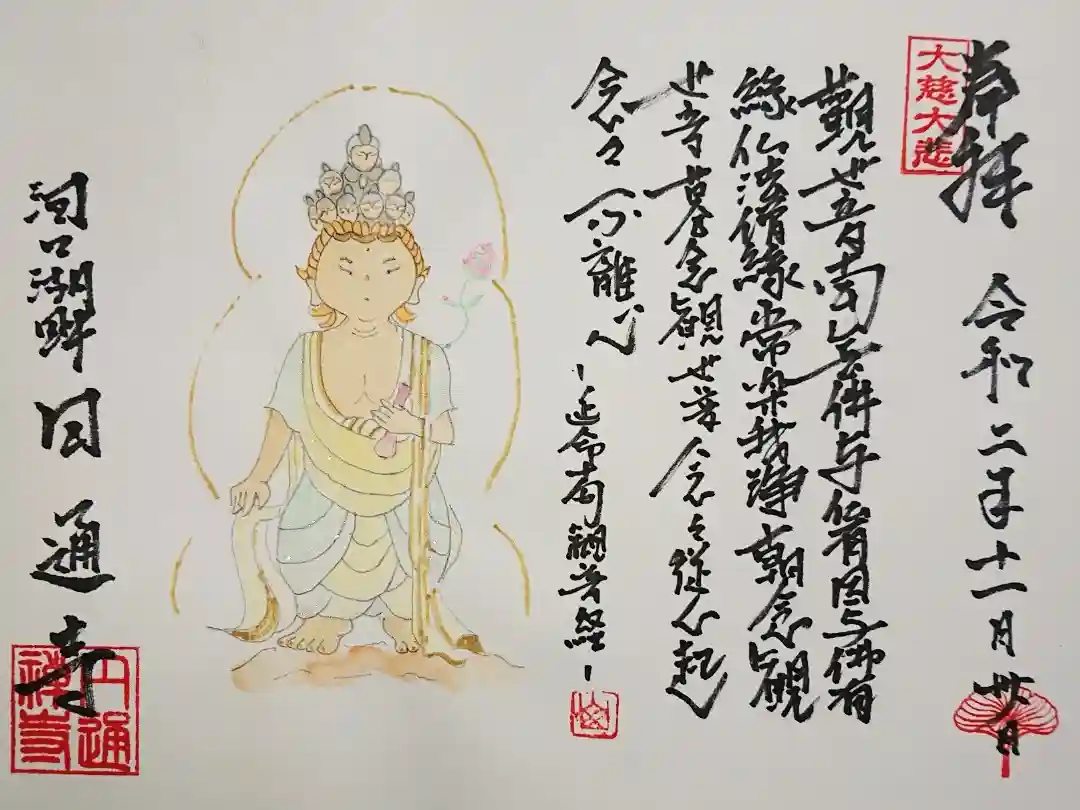 奉拝 令和二年十一月卅日
大慈大悲
觀世音南無佛与佛有因与佛有
縁仏法僧縁常楽我淨朝念觀
世音暮念觀世音念々從心起
念々不離心 -延命十句觀音経-
河口湖畔 円通寺
円通禅寺